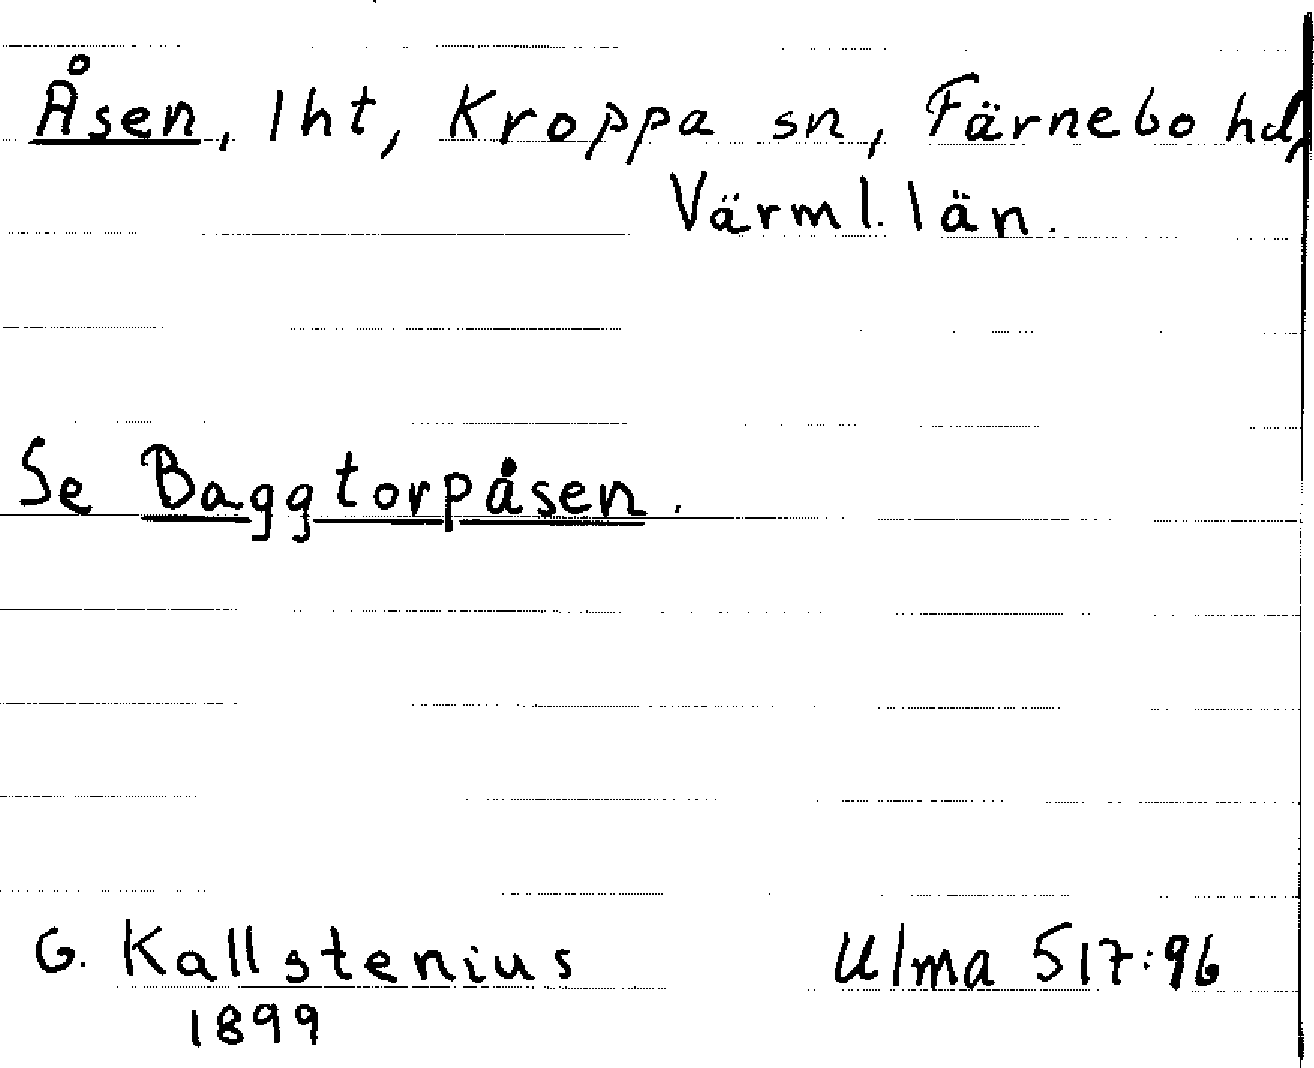 Åsen, lht, Kroppa sn, Färnebo hd,
Värml. län.
Se Baggtorpåsen.
G. Kallstenius Ulma 517:96
1899